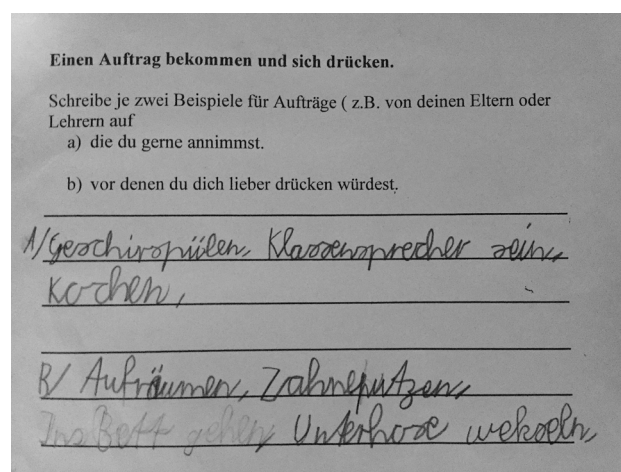 Einen Auftrag bekommen und sich drücken.
Schreibe je zwei Beispiele für Aufträge ( z.B. von deinen Eltern oder
Lehrern auf
a) die du gerne annimmst.
b) vor denen du dich lieber drücken würdest.
A/Geschirspülen, Klassensprecher sein,
Kochen,
B/ Aufräumen, Zahneputzen,
Ins Bett gehen, Unterhose wekseln,